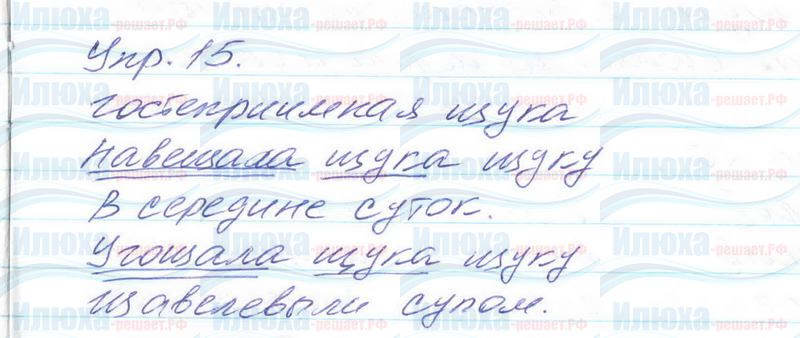 Упр. 15.
Гостеприимная щука
Навещала щука щуку
В середине суток.
Угощала щука щуку
Щавелевым супом.
Илюха-решает.РФ